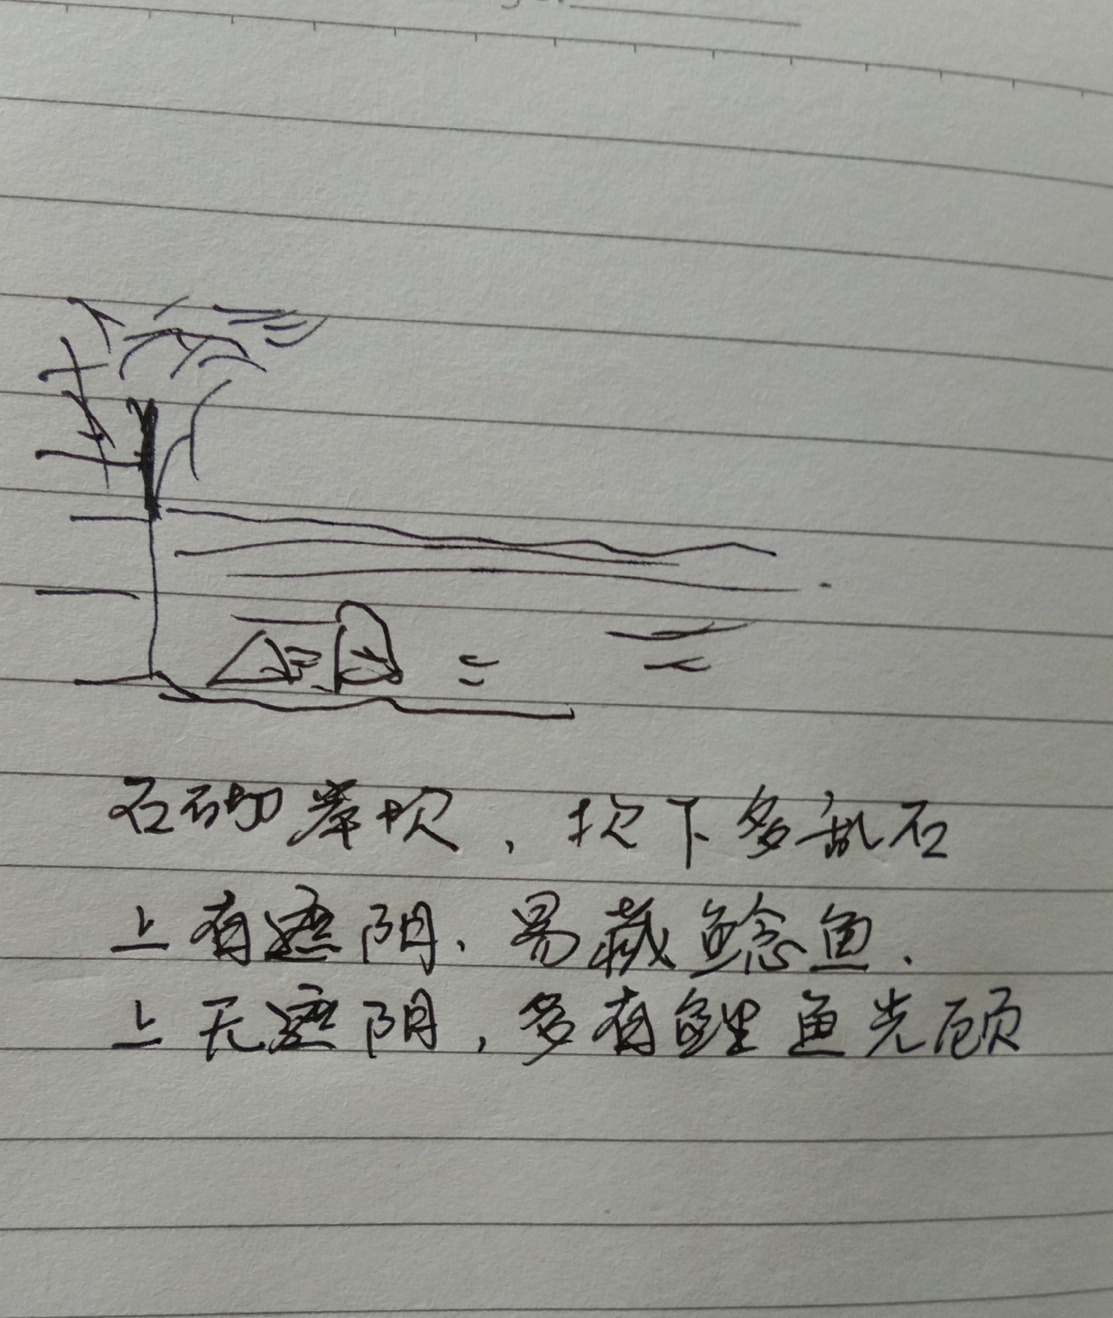 石砌岸坎，坎下多乱石
上有遮阴、易藏鲶鱼.
上无遮阴，多有鲤鱼光顾